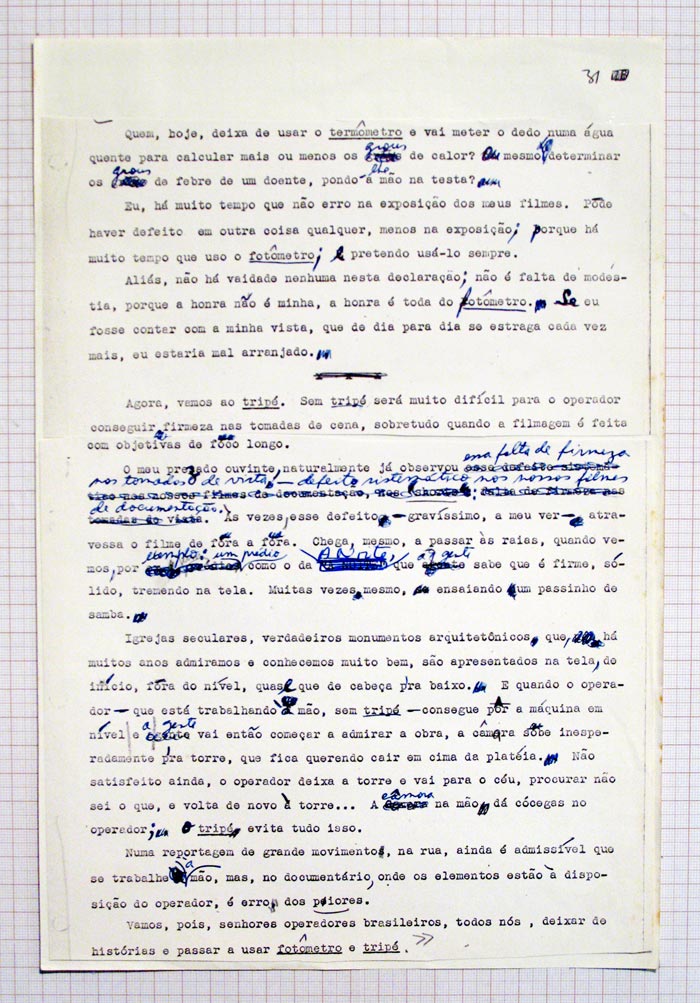 31
Quem, hoje, deixa de usar o termômetro e vai meter o dedo numa água
quente para calcular mais ou menos os graus de calor? Ou mesmo determinar
os graus de febre de um doente, pondo-lhe a mão na testa?
Eu, há muito tempo que não erro na exposição dos meus filmes. Pode
haver defeito em outra coisa qualquer, menos na exposição; porque há
muito tempo que uso o fotômetro; e pretendo usá-lo sempre.
Aliás, não há vaidade nenhuma nesta declaração; não é falta de modés-
tia, porque a honra não é minha, a honra é toda do fotômetro. Se eu
fosse contar com a minha vista, que de dia para dia se estraga cada vez
mais, eu estaria mal arranjado.
Agora, vamos ao tripé. Sem tripé será muito difícil para o operador
conseguir firmeza nas tomadas de cena, sobretudo quando a filmagem é feita
com objetivas de foco longo.
O meu prezado ouvinte, naturalmente já observou essa falta de firmeza
nas tomadas de vista, — defeito sistemático nos nossos filmes
de documentação. Às vezes, esse defeito — gravíssimo, a meu ver — atra-
vessa o filme de fora a fora. Chega, mesmo, a passar às raias, quando ve-
mos, por exemplo: um prédio como o da A Noite, que a gente sabe que é firme, só-
lido, tremendo na tela. Muitas vezes, mesmo, ensaiando um passinho de
samba.
Igrejas seculares, verdadeiros monumentos arquitetônicos, que, há
muitos anos admiramos e conhecemos muito bem, são apresentados na tela, de
início, fora do nível, quase que de cabeça pra baixo. E quando o opera-
dor — que está trabalhando à mão, sem tripé — consegue pôr a máquina em
nível e a gente vai então começar a admirar a obra, a câmara sobe inespe-
radamente pra torre, que fica querendo cair em cima da platéia. Não
satisfeito ainda, o operador deixa a torre e vai para o céu, procurar não
sei o que, e volta de novo à torre... A câmara na mão, dá cócegas no
operador; o tripé, evita tudo isso.
Numa reportagem de grande movimento, na rua, ainda é admissível que
se trabalhe à mão, mas, no documentário, onde os elementos estão à dispo-
sição do operador, é erro dos piores.
Vamos, pois, senhores operadores brasileiros, todos nós , deixar de
histórias e passar a usar fotômetro e tripé.